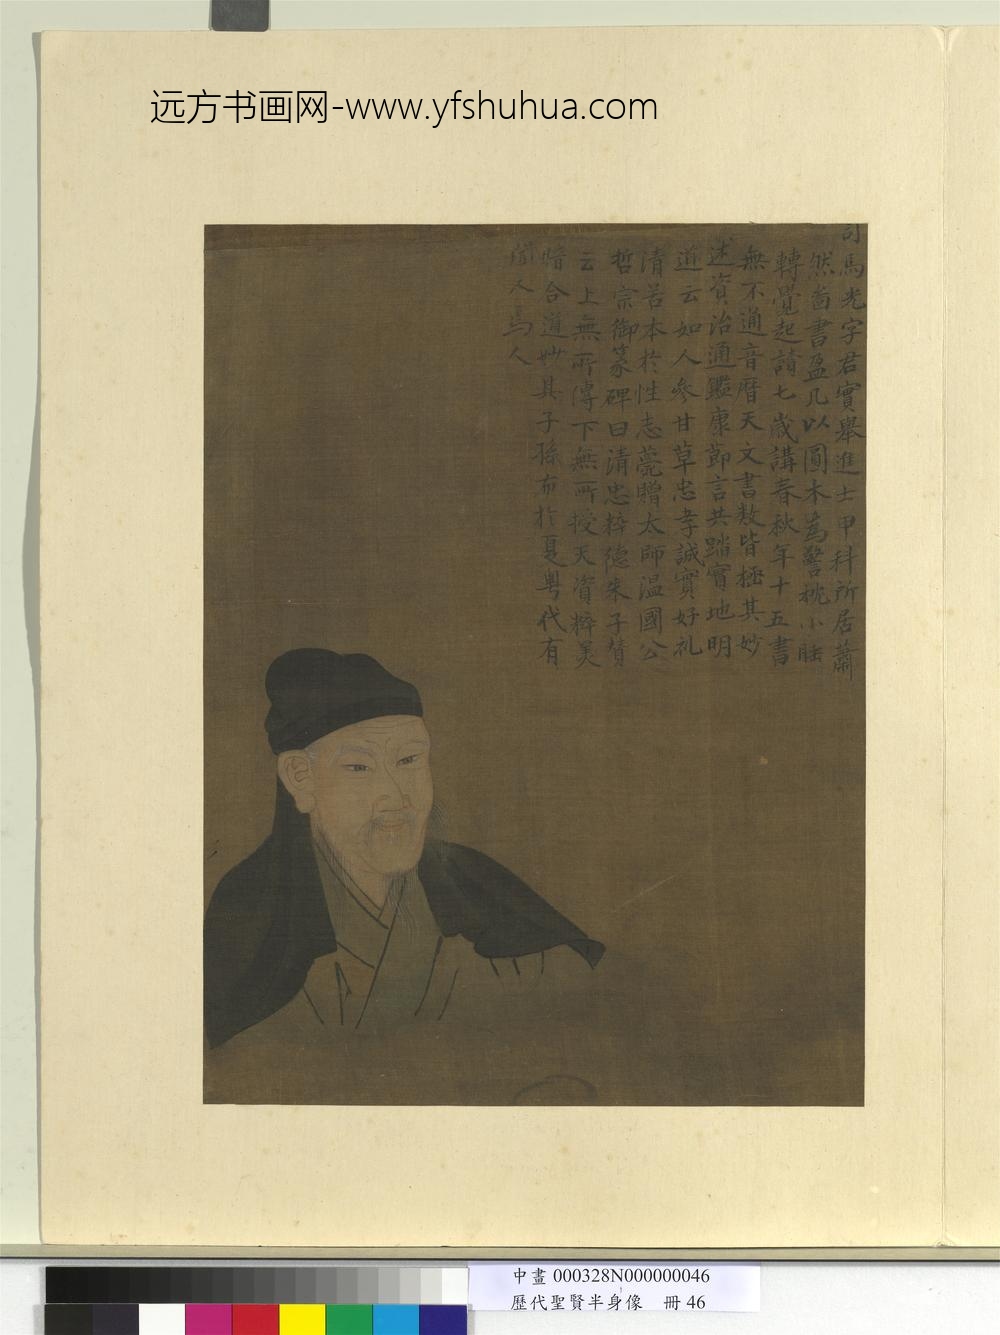 远方书画网-www.yfshuhua.com
司馬光字君實舉進士甲科所居蕭
然啚書盈几以圓木為警枕小睡
轉覺起讀七歲講春秋年十五書
無不通音曆天文書数皆極其妙
述資治通鑑康節言共踏實地明
道云如人參甘草忠孝誠實好礼
清苦本於性志薨贈太師温國公
哲宗御篆碑曰清忠粹德朱子贊
云上無所傳下無所授天資粹美
暗合道妙其子孫布於夏粤代有
聞人焉
中畫 000328N000000046
歷代聖賢半身像 冊 46